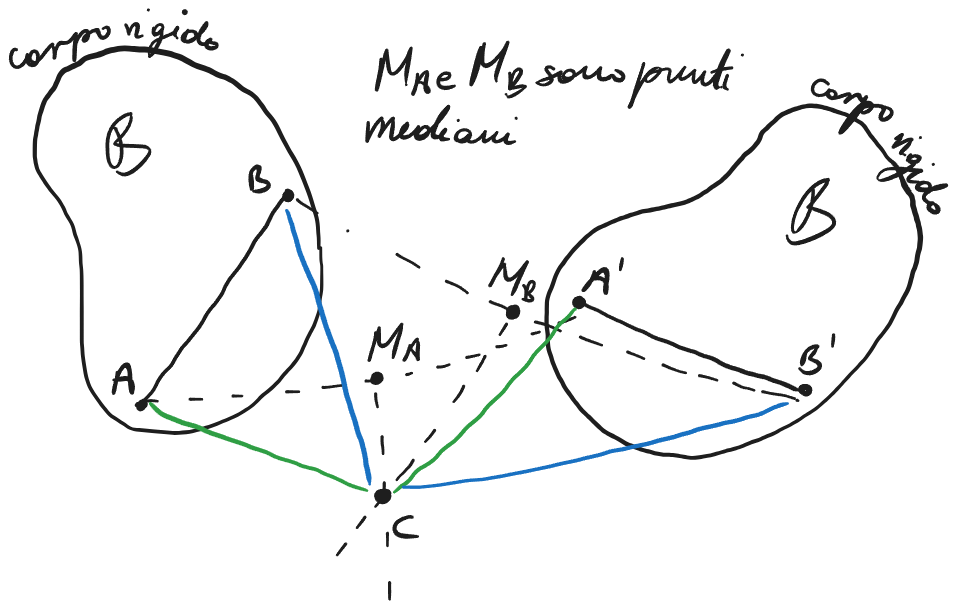 corpo rigido
M_A e M_B sono punti
mediani
corpo
rigido
B
B
B
M_B
A'
M_A
B'
A
C